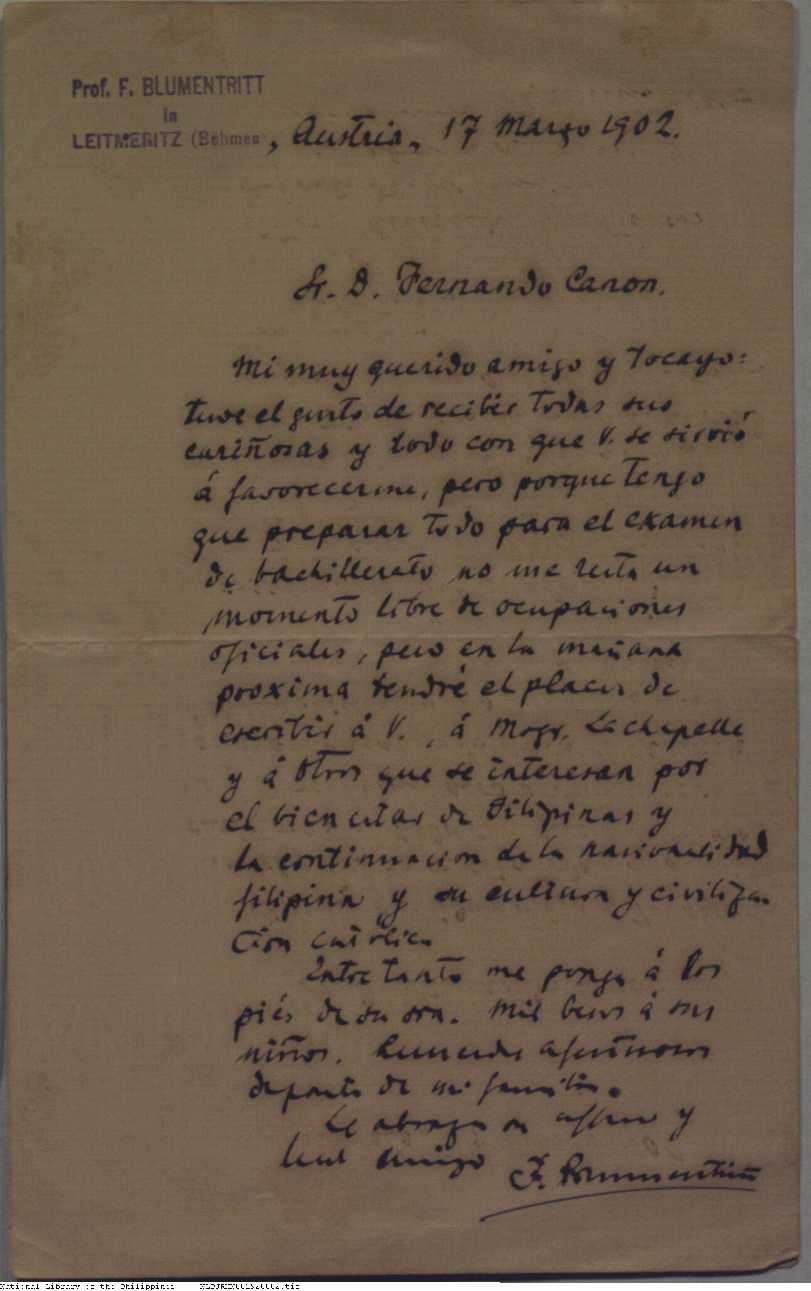 Prof. F. BLUMENTRITT
in
LEITMERITZ (Böhmen
, Austria, 17 Marzo 1902.
Sr. D. Fernando Canon.
Mi muy querido amigo y tocayo:
tuve el gusto de recibir todas sus
cariñosas y todo con que V. se sirvió
á favorecerme, pero porque tengo
que preparar todo para el examen
de bachillerato no me resta un
momento libre de ocupaciones
oficiales, pero en la mañana
proxima tendré el placer de
escribir á V., á Msgr. Lachapelle
y á otros que se interesan por
el bien estar de Filipinas y
la continuacion de la nacionalidad
filipina y su cultura y civiliza-
cion católica
Entretanto me pongo á los
piés de su sra. Mil besos á sus
niños. Recuerdos afectuosos
departe de mi familia.
Le abraza su affmo y
leal amigo F. Blumentritt
National Library of the Philippines